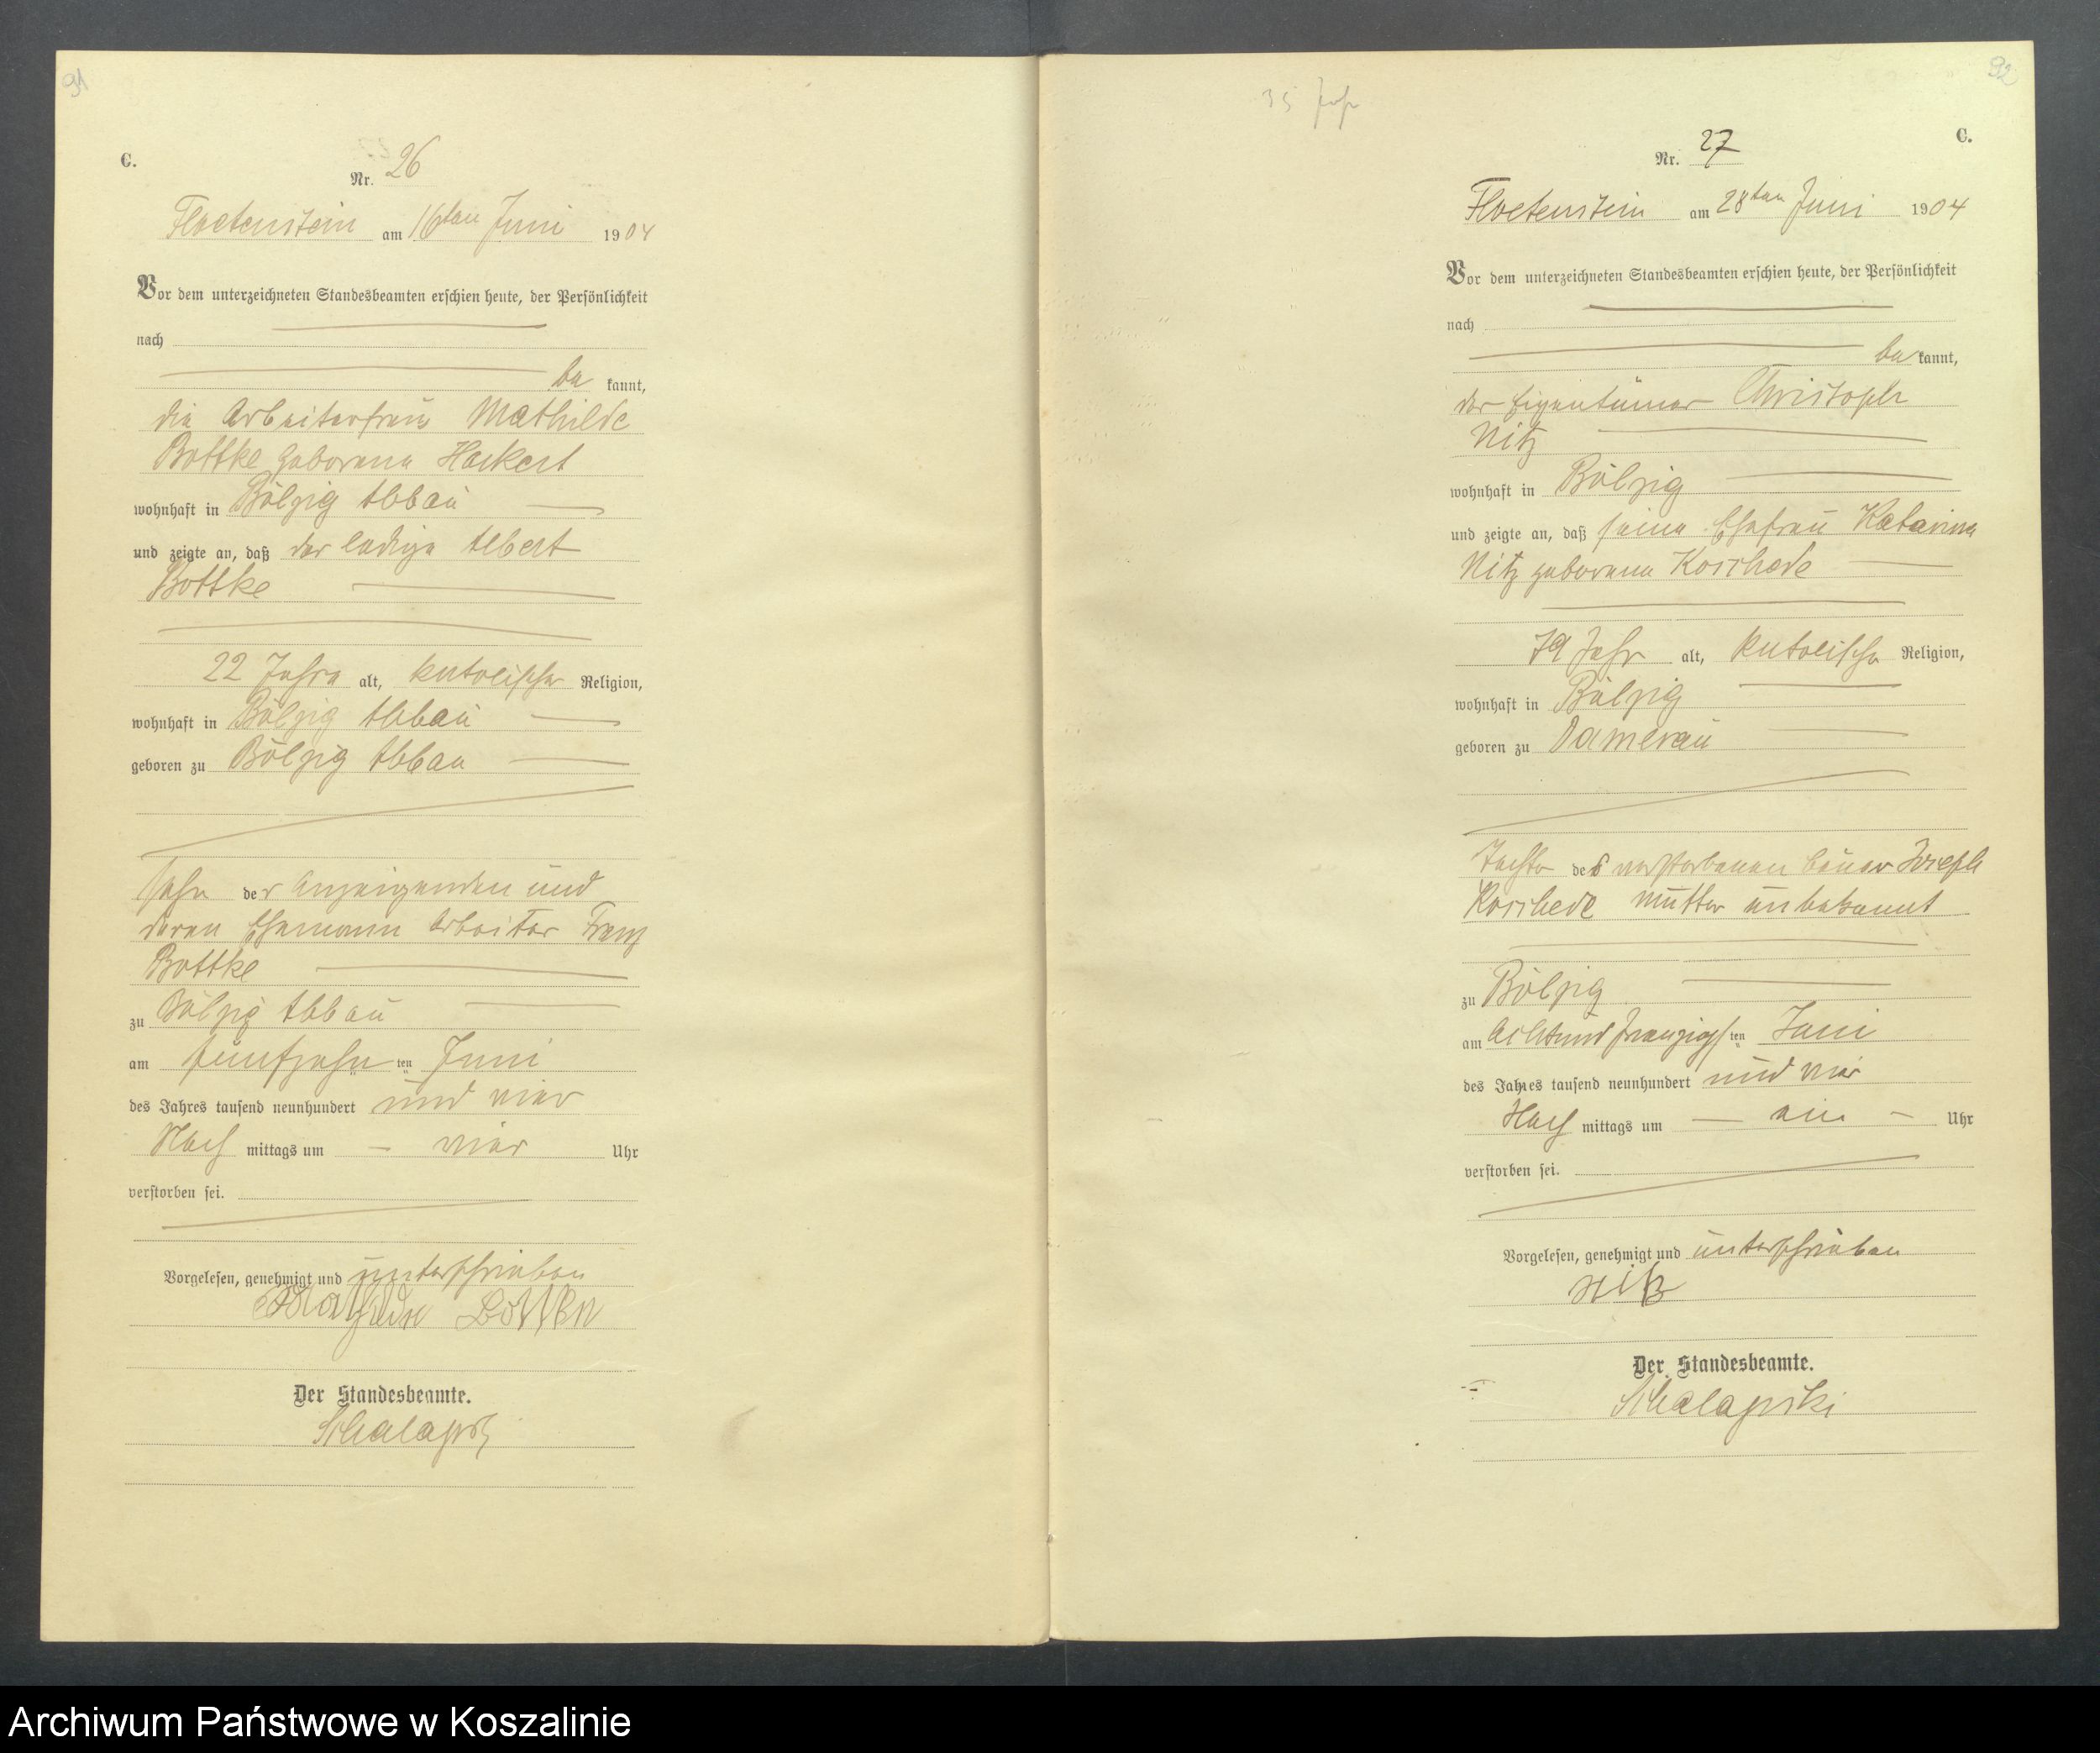 91
C.
Nr. 26
Floetenstein am 16ten Juni 1904
Vor dem unterzeichneten Standesbeamten erschien heute, der Persönlichkeit
nach
be kannt,
die Arbeiterfrau Mathilde
Bottke geborene Hackert
wohnhaft in Bölzig Abbau
und zeigte an, daß der ledige Albert
Bottke
22 Jahre alt, katolischer Religion,
wohnhaft in Bölzig Abbau
geboren zu Bölzig Abbau
sohn der Anzeigenden und
deren Ehemann Arbeiter Franz
Bottke
zu Bölzig Abbau
am fünfzehn ten Juni
des Jahres tausend neunhundert und vier
Nach mittags um vier Uhr
verstorben sei.
Vorgelesen, genehmigt und unterschrieben
Mathilde Bottke
Der Standesbeamte.
92
35 Jahr
C.
Nr. 27
Floetenstein am 28ten Juni 1904
Vor dem unterzeichneten Standesbeamten erschien heute, der Persönlichkeit
nach
be kannt,
der Eigentümer Christoph
Nitz
wohnhaft in Bölzig
und zeigte an, daß seine Ehefrau Katarina
Nitz geborene Koschede
79 Jahr alt, katolischer Religion,
wohnhaft in Bölzig
geboren zu Damerau
Tochter des verstorbenen bauer Joseph
Koschede mutter unbekannt
zu Bölzig
am Achtundzwanzigsten Juni
des Jahres tausend neunhundert und vier
Nach mittags um ein Uhr
verstorben sei.
Vorgelesen, genehmigt und unterschrieben
Nitz
Der Standesbeamte.
Archiwum Państwowe w Koszalinie